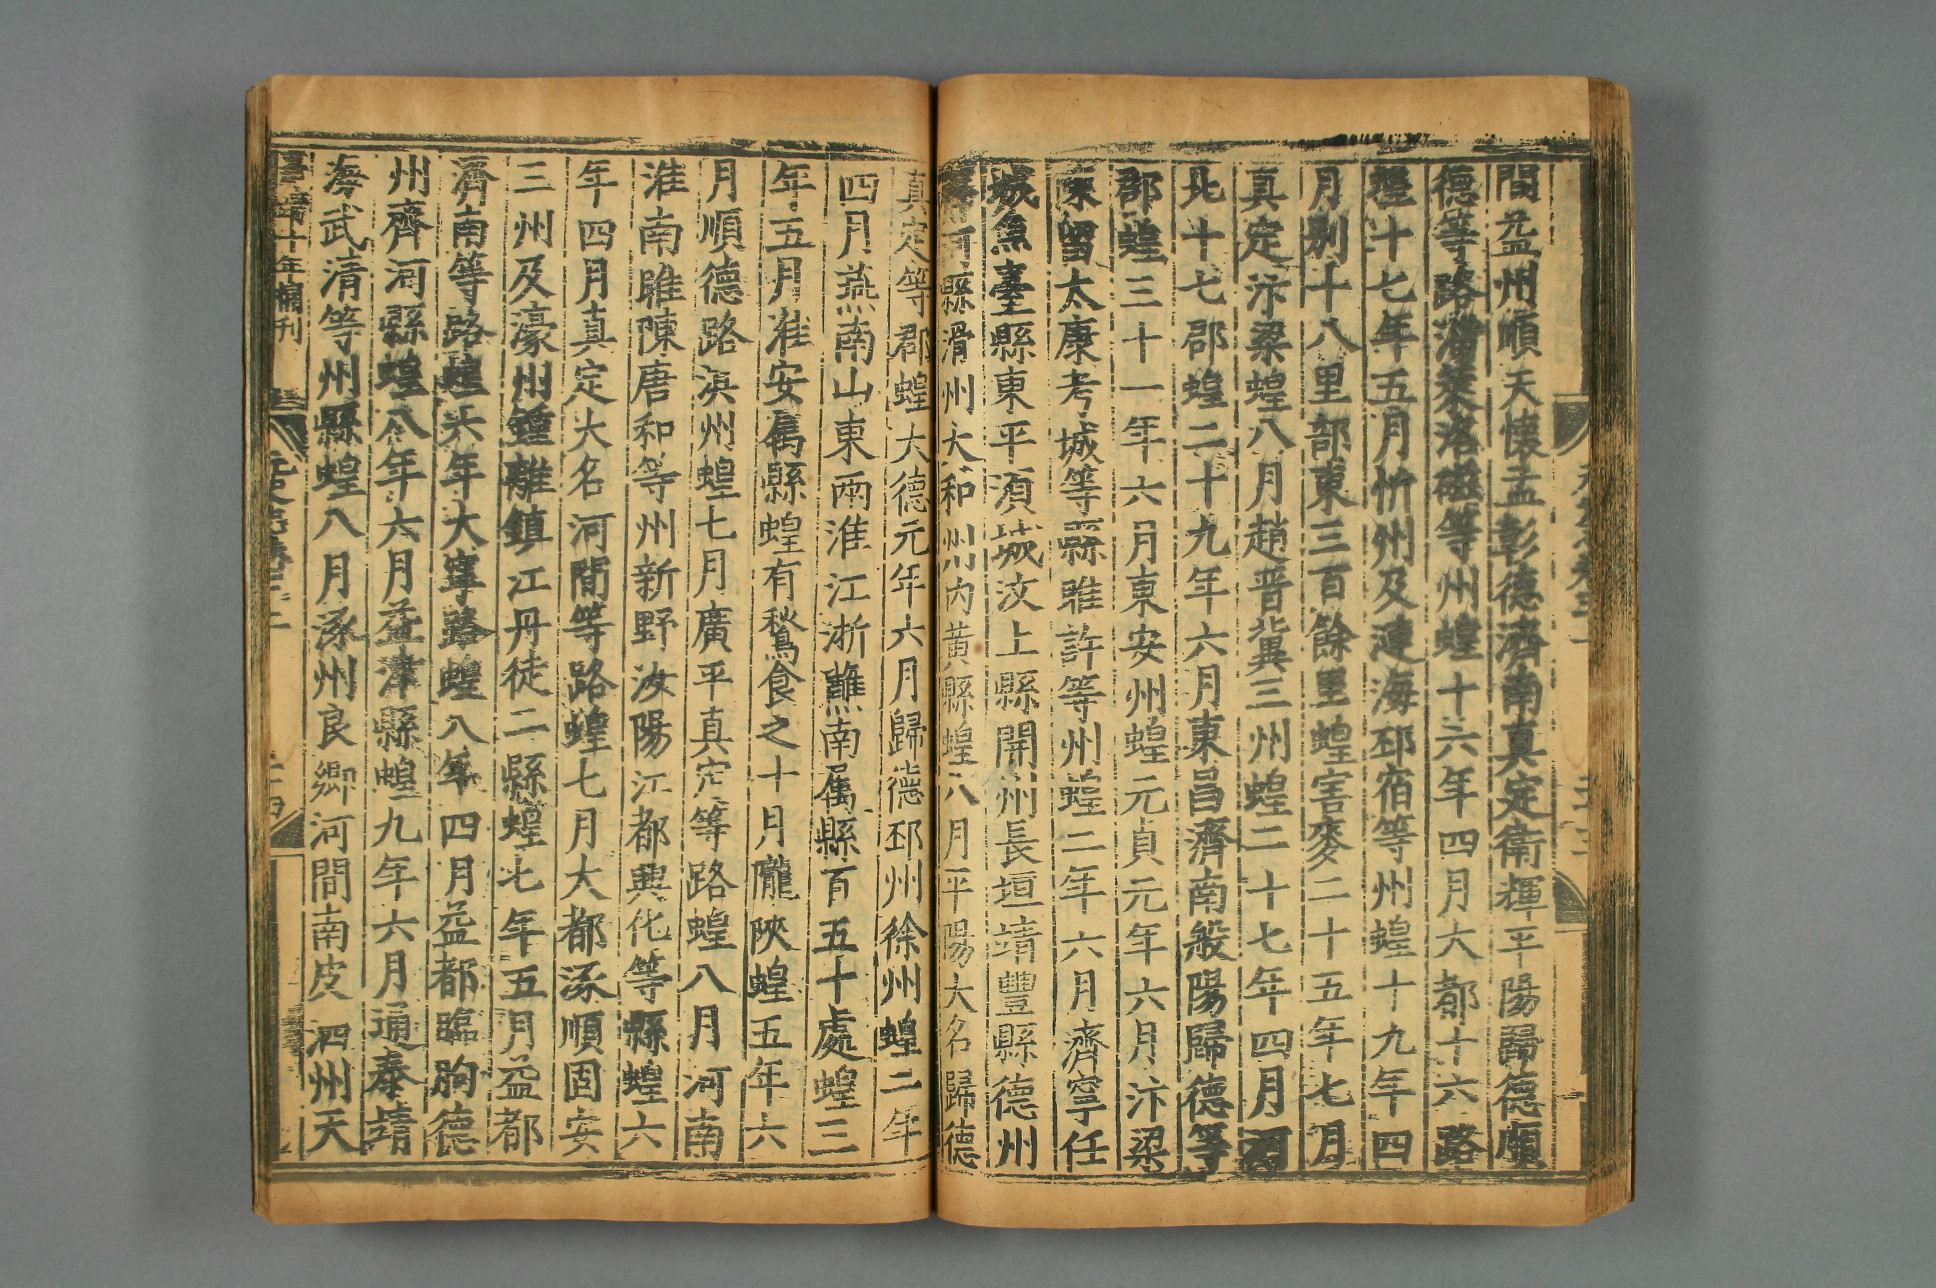 間益州順天懷孟彰德濟南真定衛輝平陽歸德順
德等路淄萊洛磁等州蝗十六年四月大都十六路
蝗十七年五月忻州及漣海邳宿等州蝗十九年四
月別十八里部東三百餘里蝗害麥二十五年七月
真定汴梁蝗八月趙晉冀三州蝗二十七年四月河
北十七郡蝗二十九年六月東昌濟南般陽歸德等
郡蝗三十一年六月東安州蝗元貞元年六月汴梁
陳留太康考城等縣睢許等州蝗二年六月濟寧任
城魚臺縣東平須城汶上縣開州長垣靖豐縣德州
齊河縣滑州太和州內黃縣蝗八月平陽大名歸德
真定等郡蝗大德元年六月歸德邳州徐州蝗二年
四月燕南山東兩淮江浙蘸南属縣百五十處蝗三
年五月淮安属縣蝗有鶖食之十月隴陝蝗五年六
月順德路淇州蝗七月廣平真定等路蝗八月河南
淮南睢陳唐和等州新野汝陽江都興化等縣蝗六
年四月真定大名河間等路蝗七月大都涿順固安
三州及濠州鍾離鎮江丹徒二縣蝗七年五月益都
濟南等路蝗六年大寧路蝗八年四月益都臨朐德
州齊河縣蝗八年六月益津縣蝗九年六月通泰靖
海武清等州縣蝗八月涿州良鄉河間南皮泗州天
嘉靖十年補刊
元史志卷三上